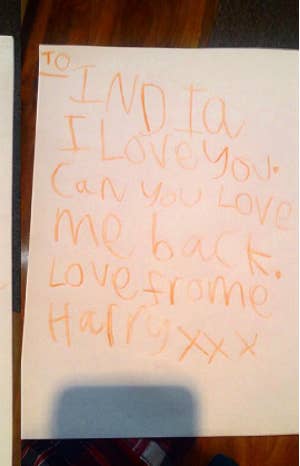 TO
INDIa
I Love you.
Can you Love
me back.
Love frome
Harry xxx